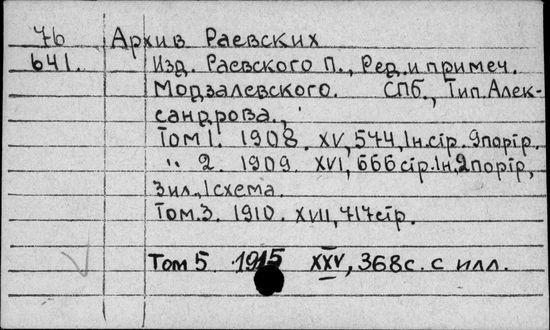 7б Архив Раевских
641. Изд. Раевского П., Ред. и примеч.
Модзалевского. СПб., Тип. Алек-
сандрова.,
Том 1. 1908. XV, 544, 1н.стр. 9портр.
" 2. 1909. XVI, 666 стр. 1н., 2портр,
3ил., 1схема.
Том. 3. 1910. XVII, 717стр.
Том 5 1915 XXV, 368с. с илл.